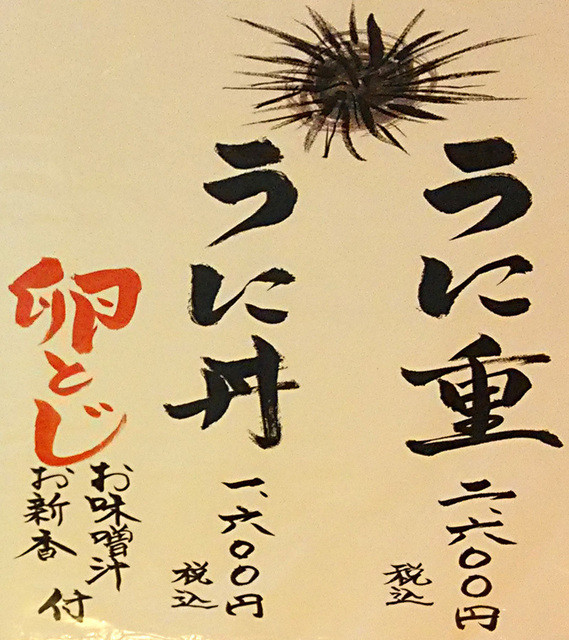 うに重
二、六〇〇円
税込
うに丼
一、六〇〇円
税込
卵とじ
お味噌汁
お新香
付